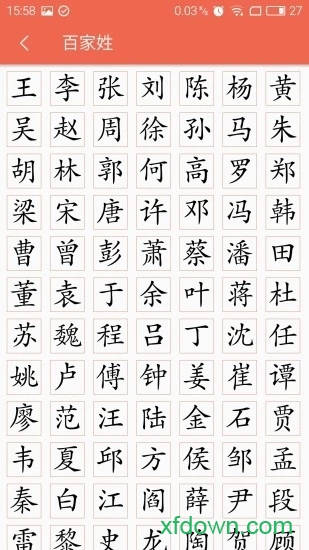 15:58 0.03% 27
百家姓
王 李 张 刘 陈 杨 黄
吴 赵 周 徐 孙 马 朱
胡 林 郭 何 高 罗 郑
梁 宋 唐 许 邓 冯 韩
曹 曾 彭 萧 蔡 潘 田
董 袁 于 余 叶 蒋 杜
苏 魏 程 吕 丁 沈 任
姚 卢 傅 钟 姜 崔 谭
廖 范 汪 陆 金 石 贾
韦 夏 邱 方 侯 邹 孟
秦 白 江 阎 薛 尹 段
雷 黎 史 龙 陶 贺 顾
xfdown.com